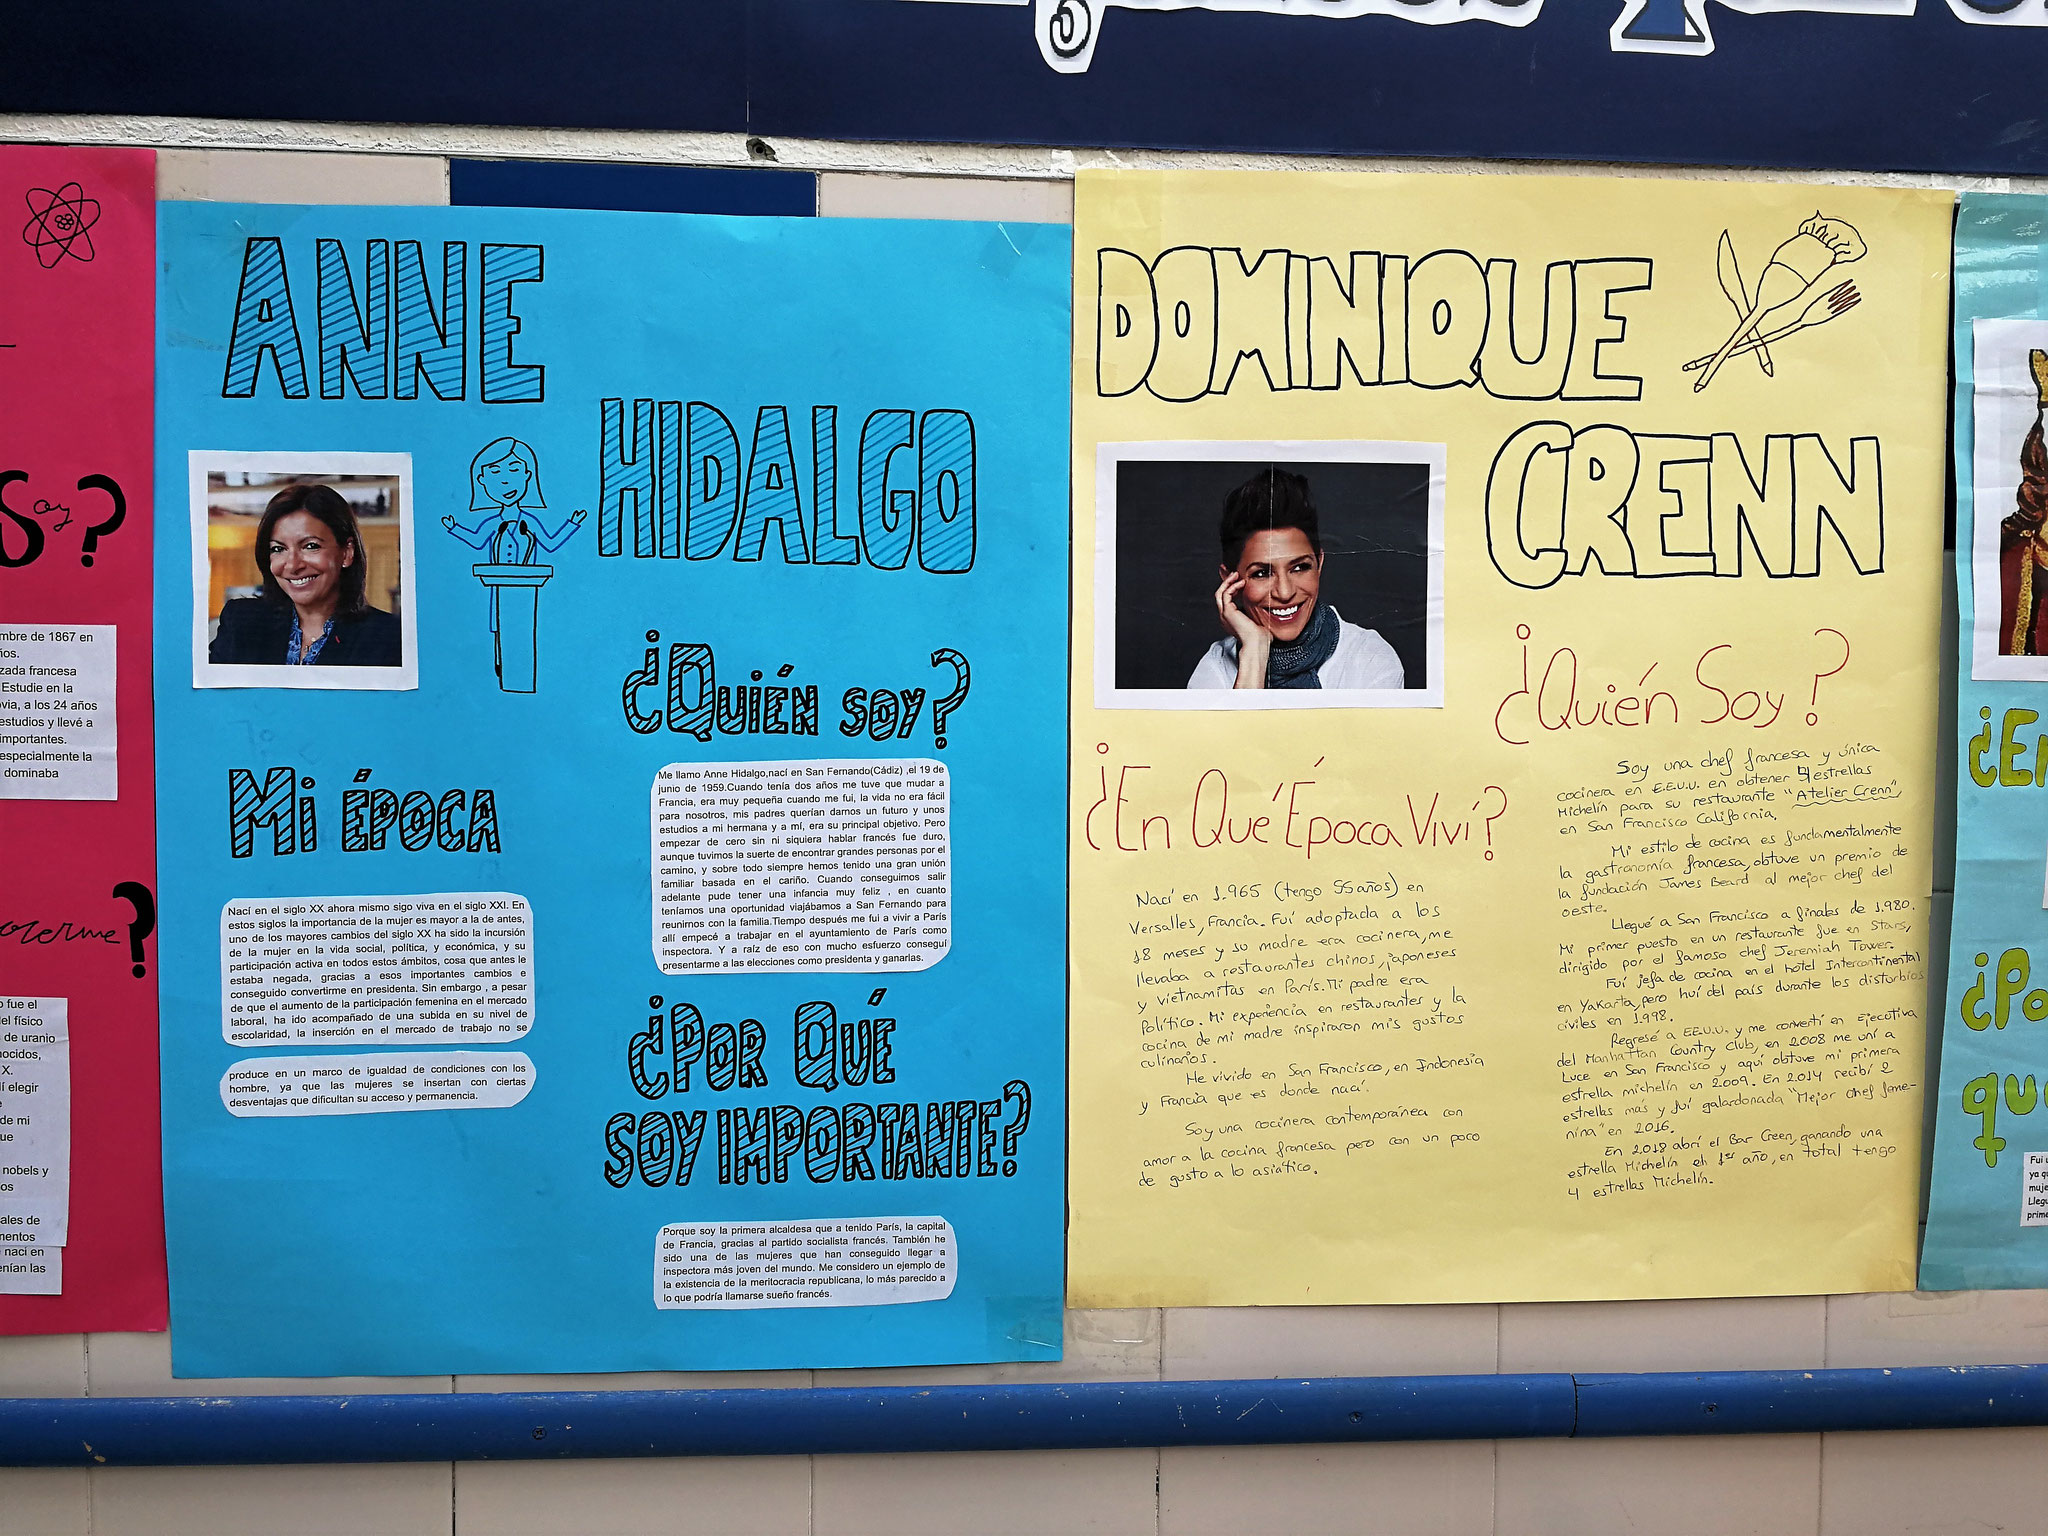 Soy?
mbre de 1867 en
ños.
zada francesa
Estudie en la
via, a los 24 años
estudios y llevé a
importantes.
especialmente la
dominaba
fue el
el físico
de uranio
nocidos,
X.
lí elegir
de mi
que
nobels y
ales de
mentos
nací en
enían las
ANNE
HIDALGO
¿Quién soy?
Me llamo Anne Hidalgo,nací en San Fernando(Cádiz) ,el 19 de
junio de 1959.Cuando tenía dos años me tuve que mudar a
Francia, era muy pequeña cuando me fui, la vida no era fácil
para nosotros, mis padres querían darnos un futuro y unos
estudios a mi hermana y a mí, era su principal objetivo. Pero
empezar de cero sin ni siquiera hablar francés fue duro,
aunque tuvimos la suerte de encontrar grandes personas por el
camino, y sobre todo siempre hemos tenido una gran unión
familiar basada en el cariño. Cuando conseguimos salir
adelante pude tener una infancia muy feliz , en cuanto
teníamos una oportunidad viajábamos a San Fernando para
reunirnos con la familia.Tiempo después me fui a vivir a París
allí empecé a trabajar en el ayuntamiento de París como
inspectora. Y a raíz de eso con mucho esfuerzo conseguí
presentarme a las elecciones como presidenta y ganarlas.
Mi época
Nací en el siglo XX ahora mismo sigo viva en el siglo XXI. En
estos siglos la importancia de la mujer es mayor a la de antes,
uno de los mayores cambios del siglo XX ha sido la incursión
de la mujer en la vida social, política, y económica, y su
participación activa en todos estos ámbitos, cosa que antes le
estaba negada, gracias a esos importantes cambios e
conseguido convertirme en presidenta. Sin embargo , a pesar
de que el aumento de la participación femenina en el mercado
laboral, ha ido acompañado de una subida en su nivel de
escolaridad, la inserción en el mercado de trabajo no se
produce en un marco de igualdad de condiciones con los
hombre, ya que las mujeres se insertan con ciertas
desventajas que dificultan su acceso y permanencia.
¿Por Qué
soy importante?
Porque soy la primera alcaldesa que a tenido París, la capital
de Francia, gracias al partido socialista francés. También he
sido una de las mujeres que han conseguido llegar a
inspectora más joven del mundo. Me considero un ejemplo de
la existencia de la meritocracia republicana, lo más parecido a
lo que podría llamarse sueño francés.
DOMINIQUE
CRENN
¿En Qué Época Viví?
Nací en 1.965 (tengo 55 años) en
Versalles, Francia. Fuí adoptada a los
18 meses y su madre era cocinera, me
llevaba a restaurantes chinos, japoneses
y vietnamitas en París. Mi padre era
Político. Mi experiencia en restaurantes y la
cocina de mi madre inspiraron mis gustos
culinarios.
He vivido en San Francisco, en Indonesia
y Francia que es donde nací.
Soy una cocinera contemporánea con
amor a la cocina francesa pero con un poco
de gusto a lo asiático.
¿Quién Soy?
Soy una chef francesa y única
cocinera en E.E.U.U. en obtener 4 estrellas
Michelín para su restaurante "Atelier Crenn",
en San Francisco California.
Mi estilo de cocina es fundamentalmente
la gastronomía francesa, obtuve un premio de
la fundación James Beard al mejor chef del
oeste.
Llegué a San Francisco a finales de 1.980.
Mi primer puesto en un restaurante fue en Stars,
dirigido por el famoso chef Jeremiah Tower.
Fuí jefa de cocina en el hotel Intercontinental
en Yakarta, pero huí del país durante los disturbios
civiles en 1.998.
Regresé a EE.U.U. y me convertí en Ejecutiva
del Manhattan Country Club, en 2008 me uní a
Luce en San Francisco y aquí obtuve mi primera
estrella michelín en 2009. En 2.014 recibí 2
estrellas más y fuí galardonada "Mejor chef feme-
nina" en 2016.
En 2.018 abrí el Bar Creen, ganando una
estrella Michelín en 1er año, en total tengo
4 estrellas Michelín.
¿En
¿Po
qu
Fui
ya q
muje
Lleg
prim